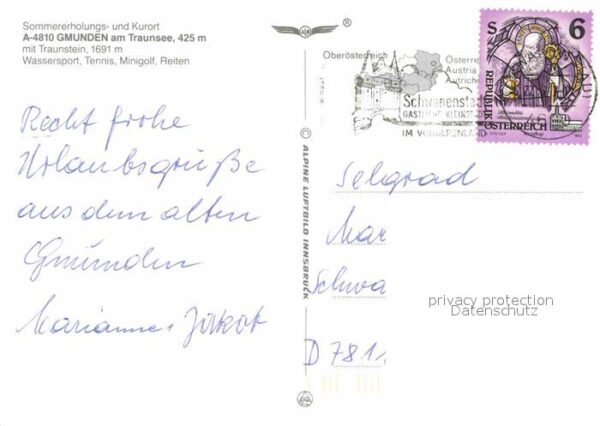 Sommererholungs- und Kurort
A-4810 GMUNDEN am Traunsee, 425 m
mit Traunstein, 1691 m
Wassersport, Tennis, Minigolf, Reiten
Recht frohe
Urlaubsgrüße
aus dem alten
Gmunden
Marianne + Jakob
ALPINE LUFTBILD INNSBRUCK
Oberösterreich
Österre
Austria
Autrich
Schwanenstad
GASTLICHE KLEINST
IM VORALPENLAND
S 6
REPUBLIK
ÖSTERREICH
Selgrad
Mar
Schwa
D 781
privacy protection
Datenschutz